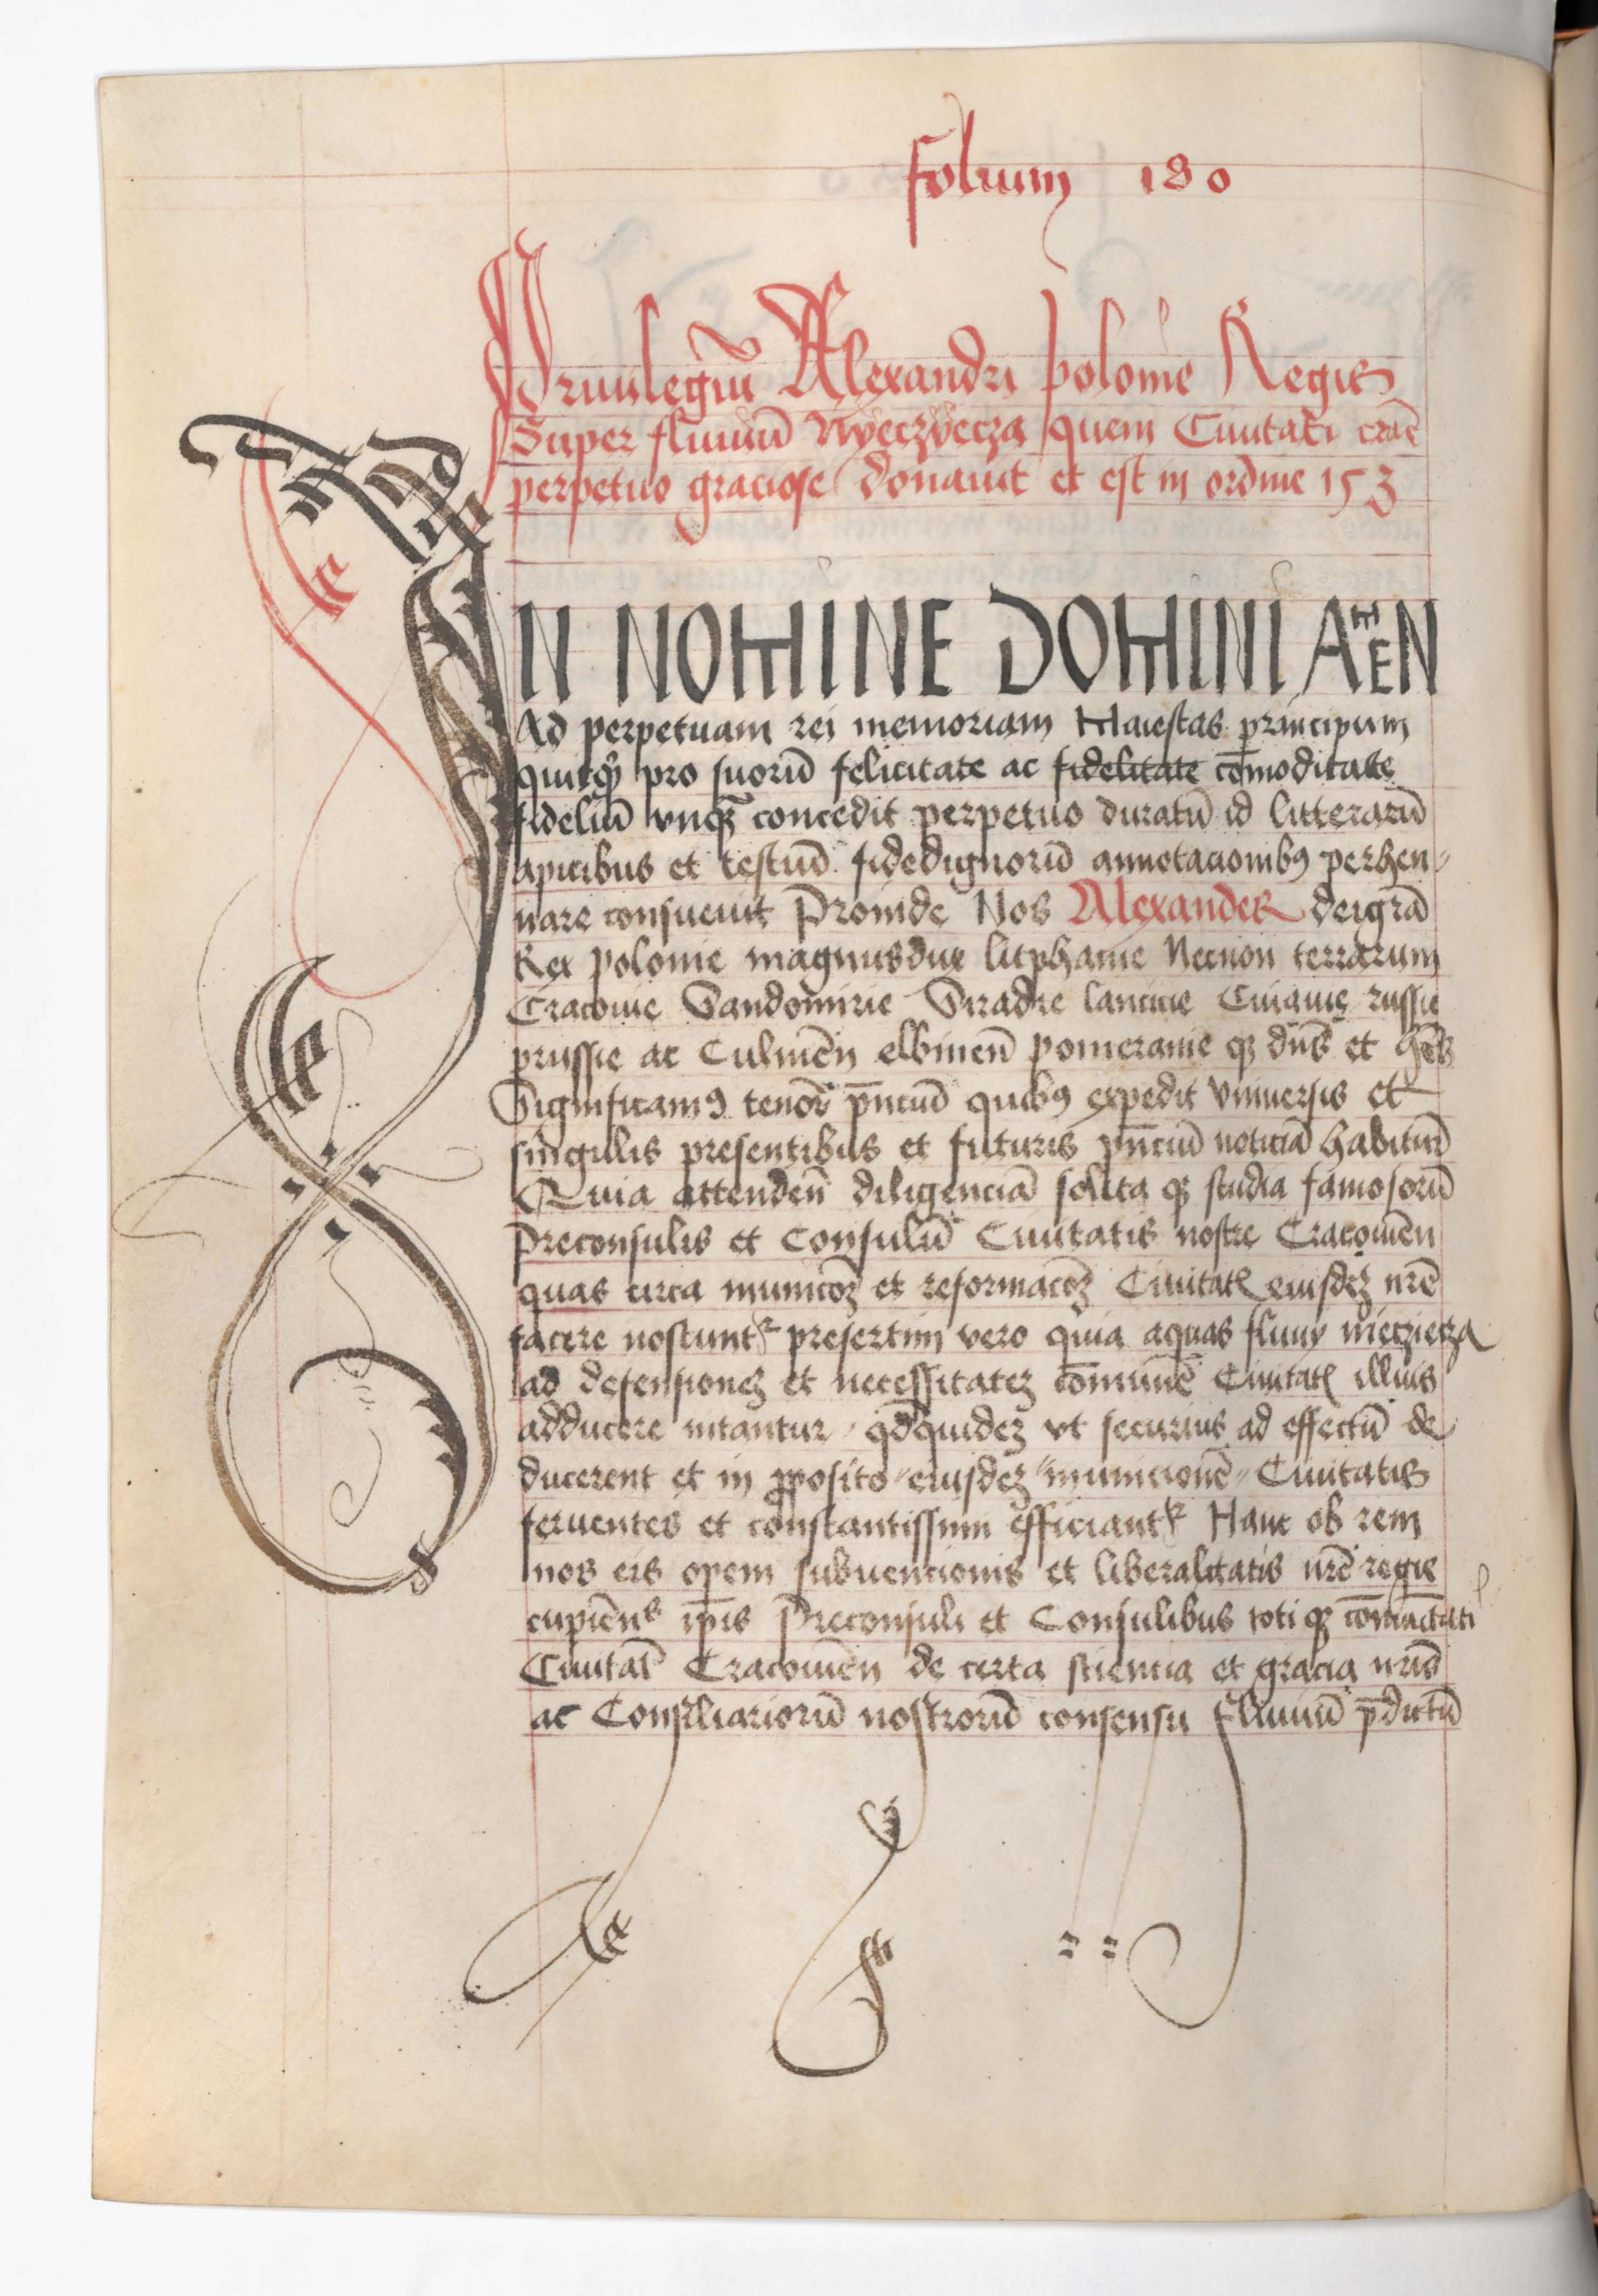 Folium 180
Priuilegiu Alexandri polonie Regis
Super fluuiū Nyeczyecza quem Ciuitati craē
perpetuo graciose donauit et est in ordine 153
IN NOMINE DOMINI AMEN
Ad perpetuam rei memoriam Maiestas principum
quitqͥd pro suorū felicitate ac fidelitate cōmoditate
fidelium vnqꝫ concedit perpetuo duratū id litterarū
apicibus et testiū fidedignorū annotacionibꝯ perhen-
nare consueuit Proinde Nos Alexander dei grā
Rex polonie magnus dux litphanie Necnon terrarum
Cracouie Sandomirie Siradie lancicie Cuiauie russie
prussie ac Culmēn elbinēn pomeranie qꝫ dn̄s et hēs
Significamꝯ tenore pn̄ciū quibꝯ expedit vniuersis et
singulis presentibus et futuris pn̄ciū noticiā habiturꝭ
Quia attendēn diligenciā solita qꝫ studia famosorū
preconsulis et Consulū Ciuitatis nostre Cracouiēn
quas circa municōꝫ et reformacōꝫ Ciuitatꝭ eiusdeꝫ nrē
facere noscuntᷣ presertim vero quia aquas fluuy niecziecza
ad defensioneꝫ et necessitateꝫ cōmunē Ciuitatꝭ illius
adducere nitantur qd̄quideꝫ vt securius ad effectū de
ducerent et in ꝓposito eiusdeꝫ municionē Ciuitatis
feruentes et constantissimi efficiantᷣ Hanc ob rem
nos eis opem subuencionis et liberalitatis nrē regie
cupiēns ip̄is Preconsuli et Consulibus toti qꝫ cōmunitati
Ciuitatꝭ Cracouiēn de certa sciencia et gracia nrīs
ac Consiliariorū nostrorū consensu fluuiū p̄dictū